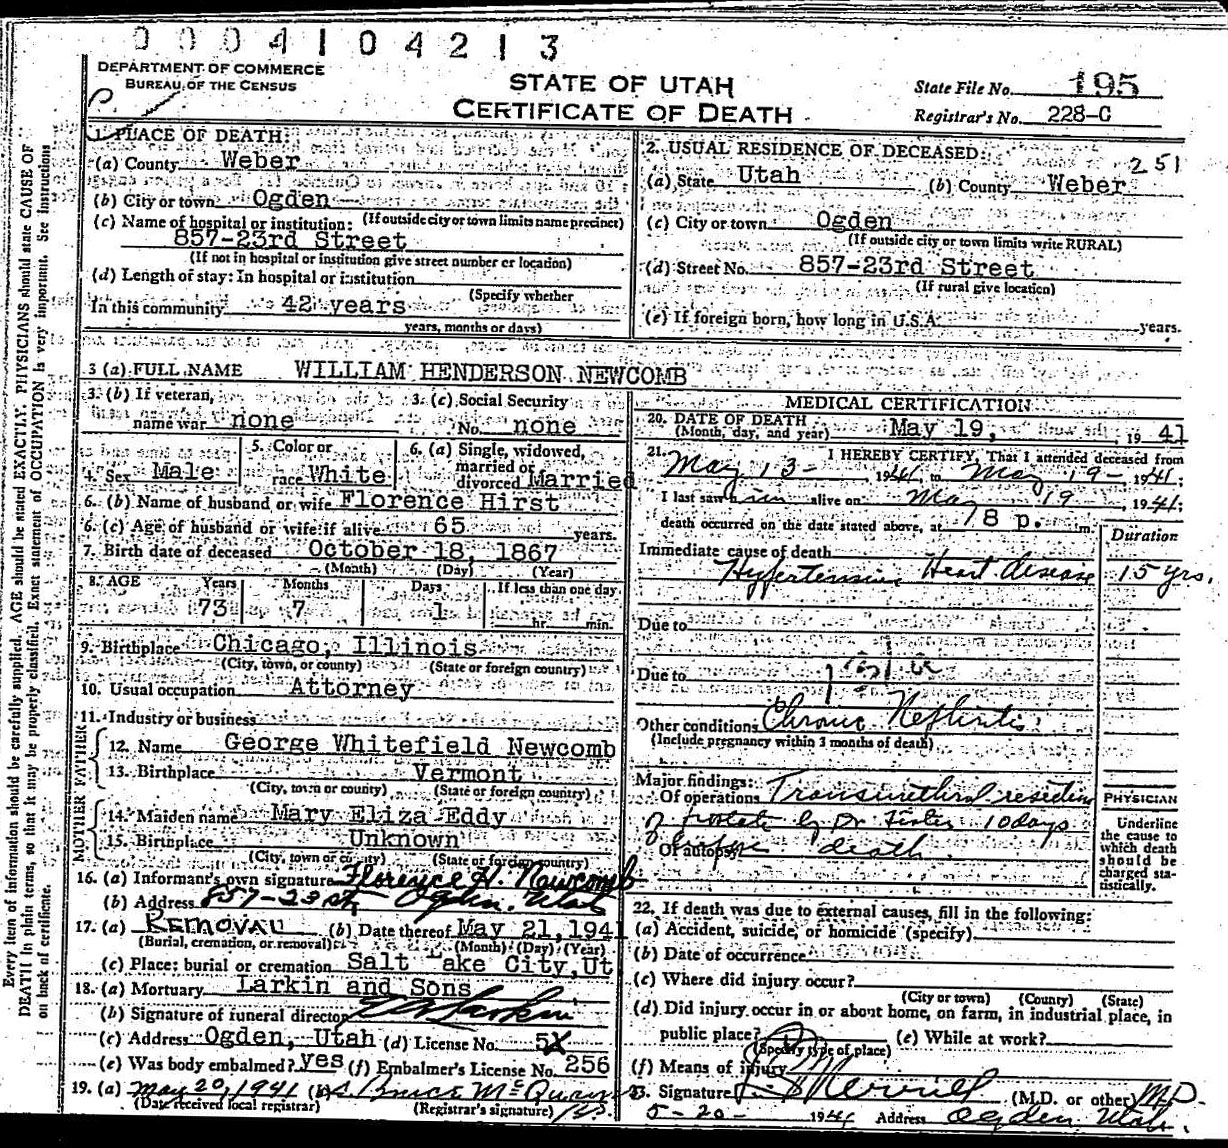 0004104213
DEPARTMENT OF COMMERCE
BUREAU OF THE CENSUS
STATE OF UTAH
CERTIFICATE OF DEATH
State File No. 195
Registrar's No. 228-C
Every item of information should be carefully supplied. AGE should be stated EXACTLY. PHYSICIANS should state CAUSE OF
DEATH in plain terms, so that it may be properly classified. Exact statement of OCCUPATION is very important. See instructions
on back of certificate.
1. PLACE OF DEATH:
(a) County Weber
(b) City or town Ogden
(c) Name of hospital or institution: (If outside city or town limits name precinct)
857-23rd Street
(If not in hospital or institution give street number or location)
(d) Length of stay: In hospital or institution
(Specify whether
In this community 42 years
years, months or days)
2. USUAL RESIDENCE OF DECEASED:
251
(a) State Utah (b) County Weber
(c) City or town Ogden
(If outside city or town limits write RURAL)
(d) Street No. 857-23rd Street
(If rural give location)
(e) If foreign born, how long in U.S.A. years.
3 (a) FULL NAME WILLIAM HENDERSON NEWCOMB
3. (b) If veteran,
name war none
3. (c) Social Security
No. none
4. Sex Male
5. Color or
race White
6. (a) Single, widowed,
married or
divorced Married
6. (b) Name of husband or wife Florence Hirst
6. (c) Age of husband or wife if alive 65 years.
7. Birth date of deceased October 18, 1867
(Month) (Day) (Year)
8. AGE Years Months Days If less than one day
73 7 1 hr. min.
9. Birthplace Chicago, Illinois
(City, town, or county) (State or foreign country)
10. Usual occupation Attorney
11. Industry or business
FATHER
12. Name George Whitefield Newcomb
13. Birthplace Vermont
(City, town or county) (State or foreign country)
MOTHER
14. Maiden name Mary Eliza Eddy
15. Birthplace Unknown
(City, town or county) (State or foreign country)
16. (a) Informant's own signature Florence H. Newcomb
(b) Address 857-23 St Ogden, Utah
17. (a) REMOVAL (b) Date thereof May 21, 1941
(Burial, cremation, or removal) (Month) (Day) (Year)
(c) Place: burial or cremation Salt Lake City, Ut
18. (a) Mortuary Larkin and Sons
(b) Signature of funeral director Larkin
(c) Address Ogden, Utah (d) License No. 5X
(e) Was body embalmed? yes (f) Embalmer's License No. 256
19. (a) May 20, 1941 (b)
(Date received local registrar) (Registrar's signature)
MEDICAL CERTIFICATION
20. DATE OF DEATH May 19, 1941
(Month, day, and year)
21. I HEREBY CERTIFY, That I attended deceased from
May 13- 1941, to May 19- 1941;
I last saw him alive on May 19, 1941;
death occurred on the date stated above, at 8 p. m.
Duration
Immediate cause of death
Hypertensive Heart disease 15 yrs.
Due to
Due to
Other conditions Chronic Nephritis
(Include pregnancy within 3 months of death)
Major findings:
Of operations Transurethral resection
of prostate by Dr 10 days
Of autopsy before death.
PHYSICIAN
Underline
the cause to
which death
should be
charged sta-
tistically.
22. If death was due to external causes, fill in the following:
(a) Accident, suicide, or homicide (specify)
(b) Date of occurrence
(c) Where did injury occur?
(City or town) (County) (State)
(d) Did injury occur in or about home, on farm, in industrial place, in
public place? (e) While at work?
(Specify type of place)
(f) Means of injury
23. Signature Merrill (M.D. or other) M.D.
5-20- 1941 Address Ogden, Utah.